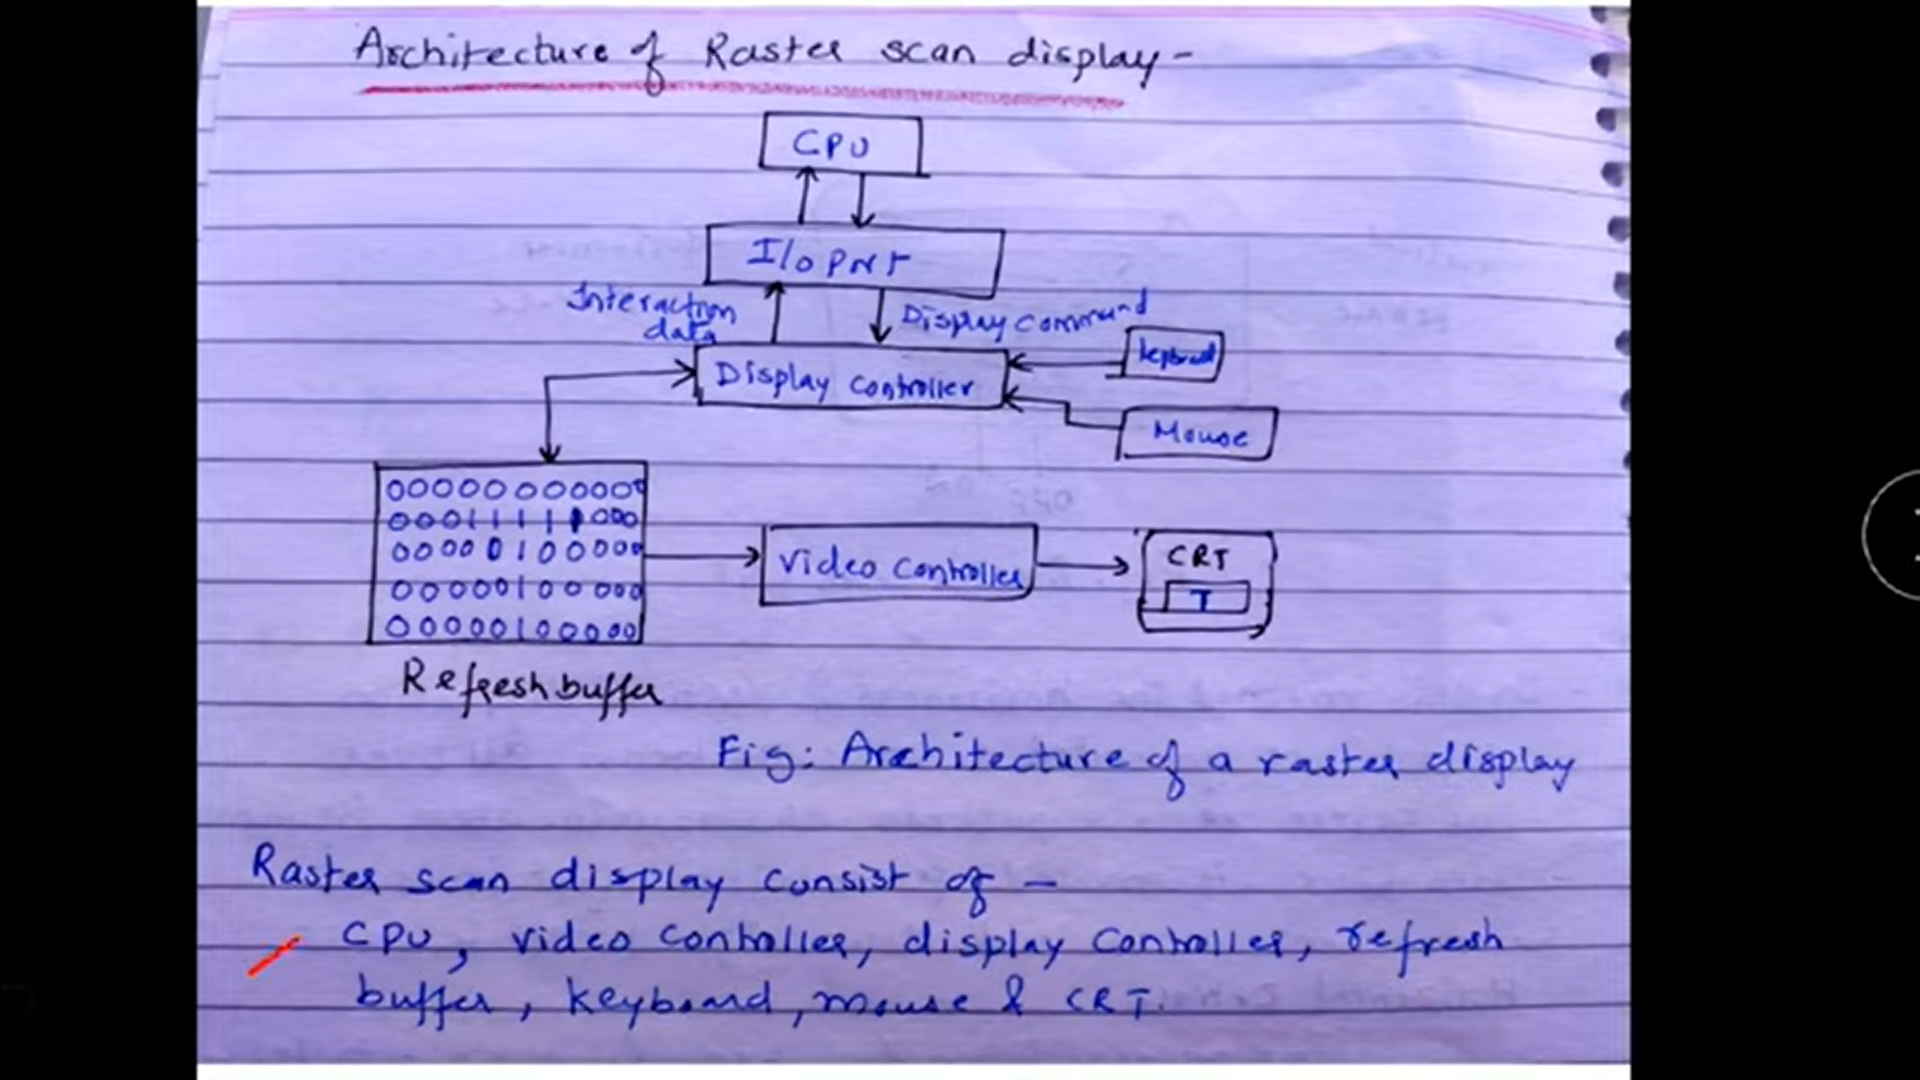 Architecture of Raster scan display -
CPU
I/O Port
Interaction
data
Display command
keyboard
Display controller
Mouse
00000000000
00011111000
00000100000
00000100000
00000100000
Video Controller
CRT
T
Refresh buffer
Fig: Architecture of a raster display
Raster scan display consist of -
CPU, video controller, display controller, refresh
buffer, keyboard, mouse & CRT.